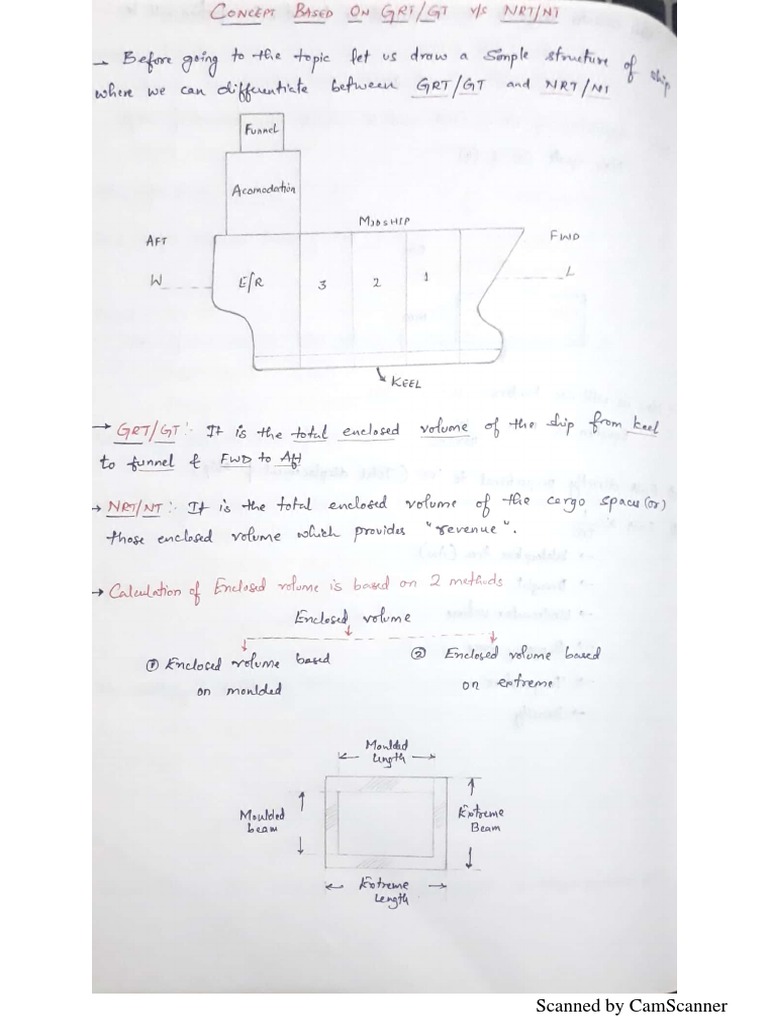 CONCEPT BASED ON GRT/GT V/S NRT/NT
→ Before going to the topic let us draw a simple structure of ship
where we can differentiate between GRT/GT and NRT/NT
Funnel
Acomodation
MIDSHIP
AFT
FWD
W
E/R
3
2
1
L
KEEL
→ GRT/GT:- It is the total enclosed volume of the ship from keel
to funnel & FWD to Aft
→ NRT/NT:- It is the total enclosed volume of the cargo spaces (or)
those enclosed volume which provides "revenue".
→ Calculation of Enclosed volume is based on 2 methods
Enclosed volume
① Enclosed volume based
on moulded
② Enclosed volume based
on extreme
Moulded
Length
Moulded
beam
Extreme
Beam
Extreme
Length
Scanned by CamScanner